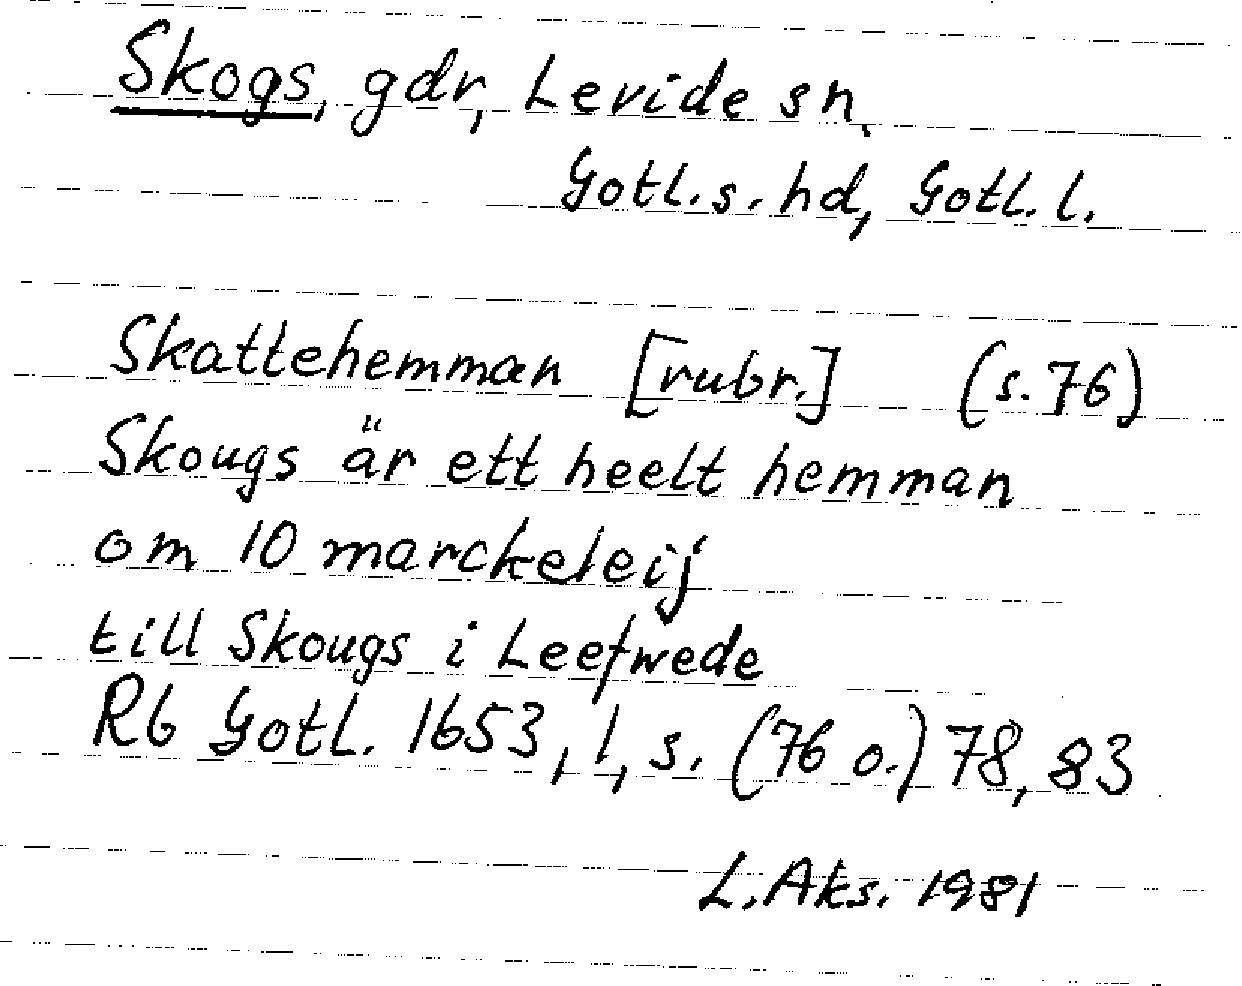 Skogs, gdr, Levide sn.
Gotl. s. hd, Gotl. l.
Skattehemman [rubr.] (s. 76)
Skougs är ett heelt hemman
om 10 marckeleij
till Skougs i Leefwede
Rb Gotl. 1653, 1, s. (76 o.) 78, 83
L. Aks. 1981